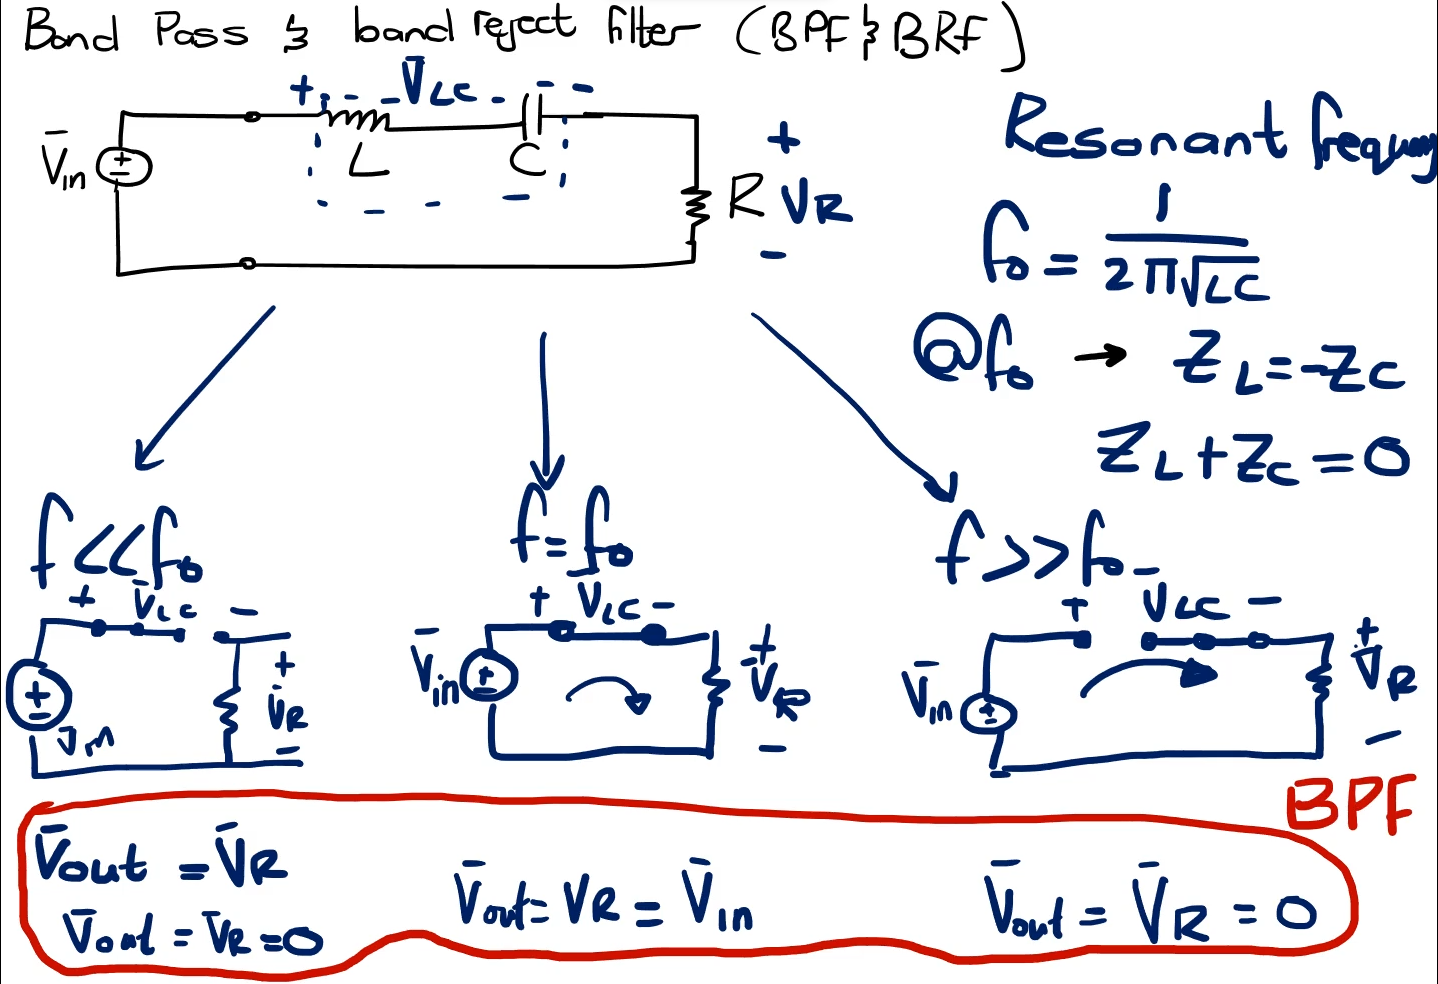 Band Pass & band reject filter (BPF & BRF)
+ V̄LC -
V̄in
+
-
L
C
R
+
VR
-
Resonant frequency
f₀ = 1 / 2π√LC
@f₀ → ZL = -ZC
ZL + ZC = 0
f << f₀
f = f₀
f >> f₀
+ V̄LC -
+ V̄LC -
+ V̄LC -
V̄in
+
-
+
V̄R
-
V̄in
+
-
+
V̄R
-
V̄in
+
-
+
V̄R
-
BPF
V̄out = V̄R
V̄out = V̄R = 0
V̄out = VR = V̄in
V̄out = V̄R = 0